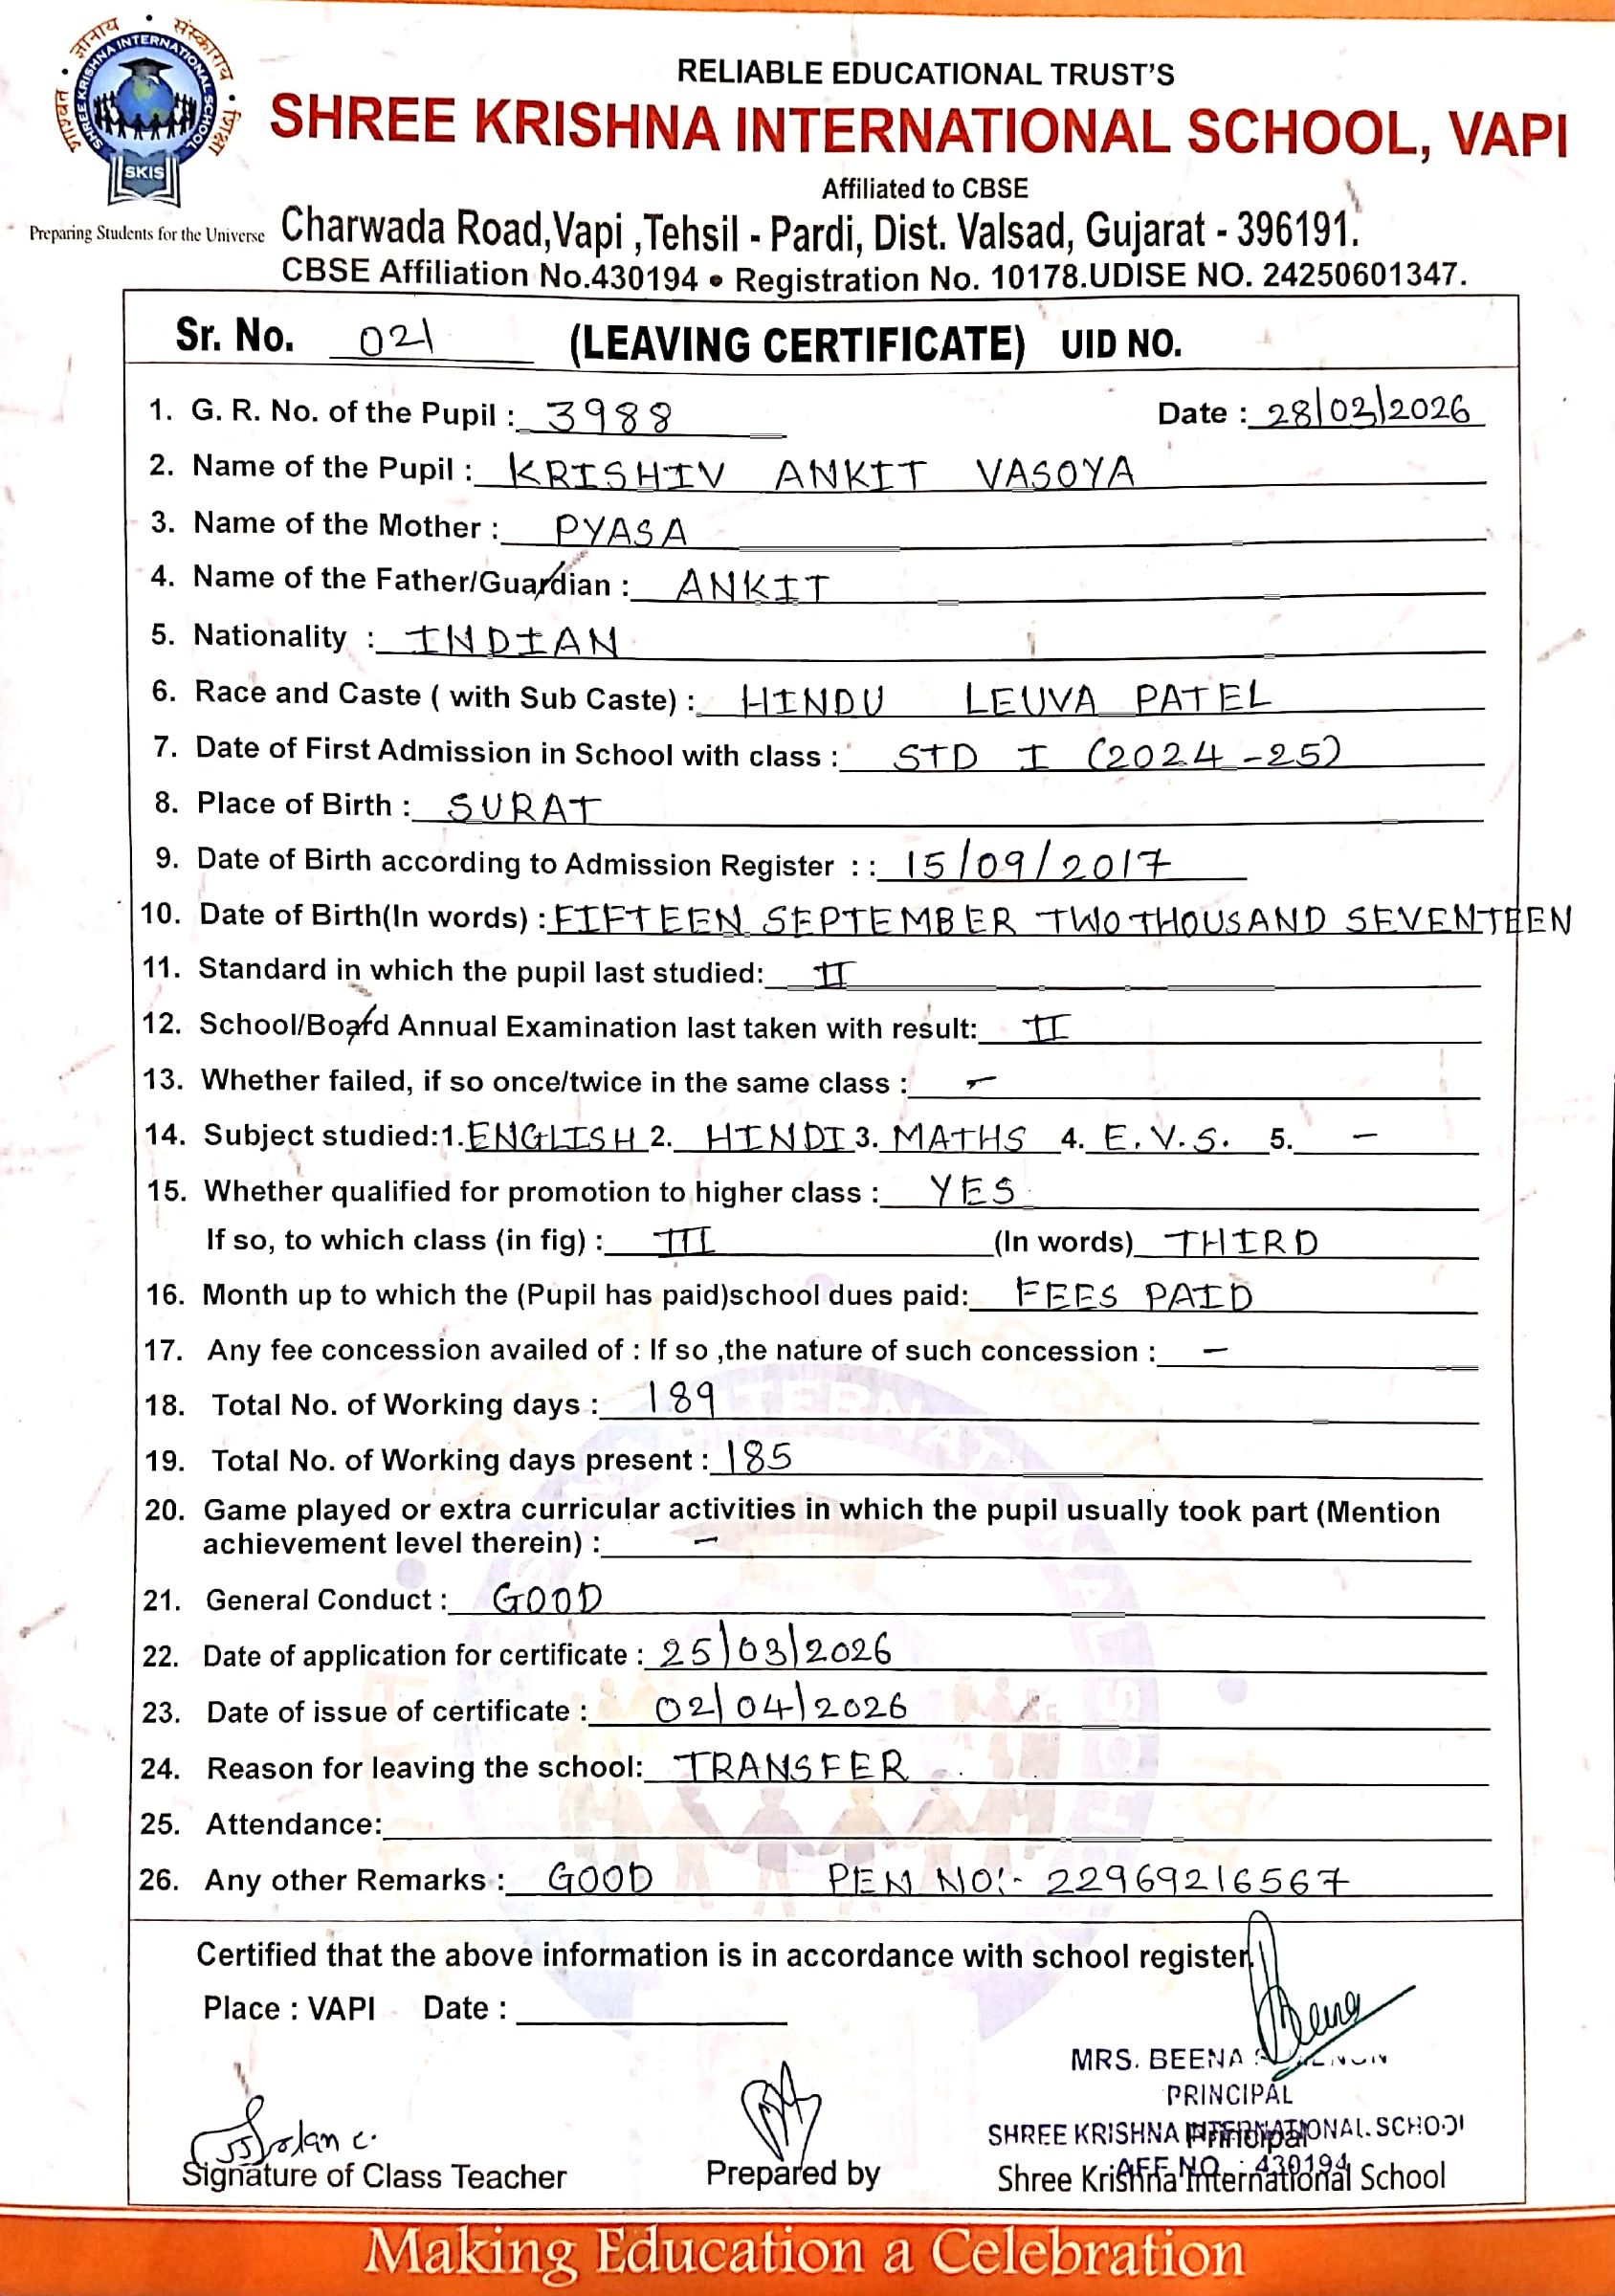 RELIABLE EDUCATIONAL TRUST'S
SHREE KRISHNA INTERNATIONAL SCHOOL, VAPI
SHREE KRISHNA INTERNATIONAL SCHOOL
SKIS
Affiliated to CBSE
Preparing Students for the Universe
Charwada Road,Vapi ,Tehsil - Pardi, Dist. Valsad, Gujarat - 396191.
CBSE Affiliation No.430194 • Registration No. 10178.UDISE NO. 24250601347.
Sr. No. 021 (LEAVING CERTIFICATE) UID NO.
1. G. R. No. of the Pupil : 3988 Date : 28/03/2026
2. Name of the Pupil : KRISHIV ANKIT VASOYA
3. Name of the Mother : PYASA
4. Name of the Father/Guardian : ANKIT
5. Nationality : INDIAN
6. Race and Caste ( with Sub Caste) : HINDU LEUVA PATEL
7. Date of First Admission in School with class : STD I (2024-25)
8. Place of Birth : SURAT
9. Date of Birth according to Admission Register : : 15/09/2017
10. Date of Birth(In words) : FIFTEEN SEPTEMBER TWO THOUSAND SEVENTEEN
11. Standard in which the pupil last studied: II
12. School/Board Annual Examination last taken with result: II
13. Whether failed, if so once/twice in the same class : -
14. Subject studied:1. ENGLISH 2. HINDI 3. MATHS 4. E.V.S. 5. -
15. Whether qualified for promotion to higher class : YES
If so, to which class (in fig) : III (In words) THIRD
16. Month up to which the (Pupil has paid)school dues paid: FEES PAID
17. Any fee concession availed of : If so ,the nature of such concession : -
18. Total No. of Working days : 189
19. Total No. of Working days present : 185
20. Game played or extra curricular activities in which the pupil usually took part (Mention
achievement level therein) : -
21. General Conduct : GOOD
22. Date of application for certificate : 25/03/2026
23. Date of issue of certificate : 02/04/2026
24. Reason for leaving the school: TRANSFER
25. Attendance:
26. Any other Remarks : GOOD PEN NO:- 22969216567
Certified that the above information is in accordance with school register.
Place : VAPI Date :
MRS. BEENA
PRINCIPAL
SHREE KRISHNA INTERNATIONAL SCHOOL
Principal
AFF NO. : 430194
Signature of Class Teacher Prepared by Shree Krishna International School
Making Education a Celebration